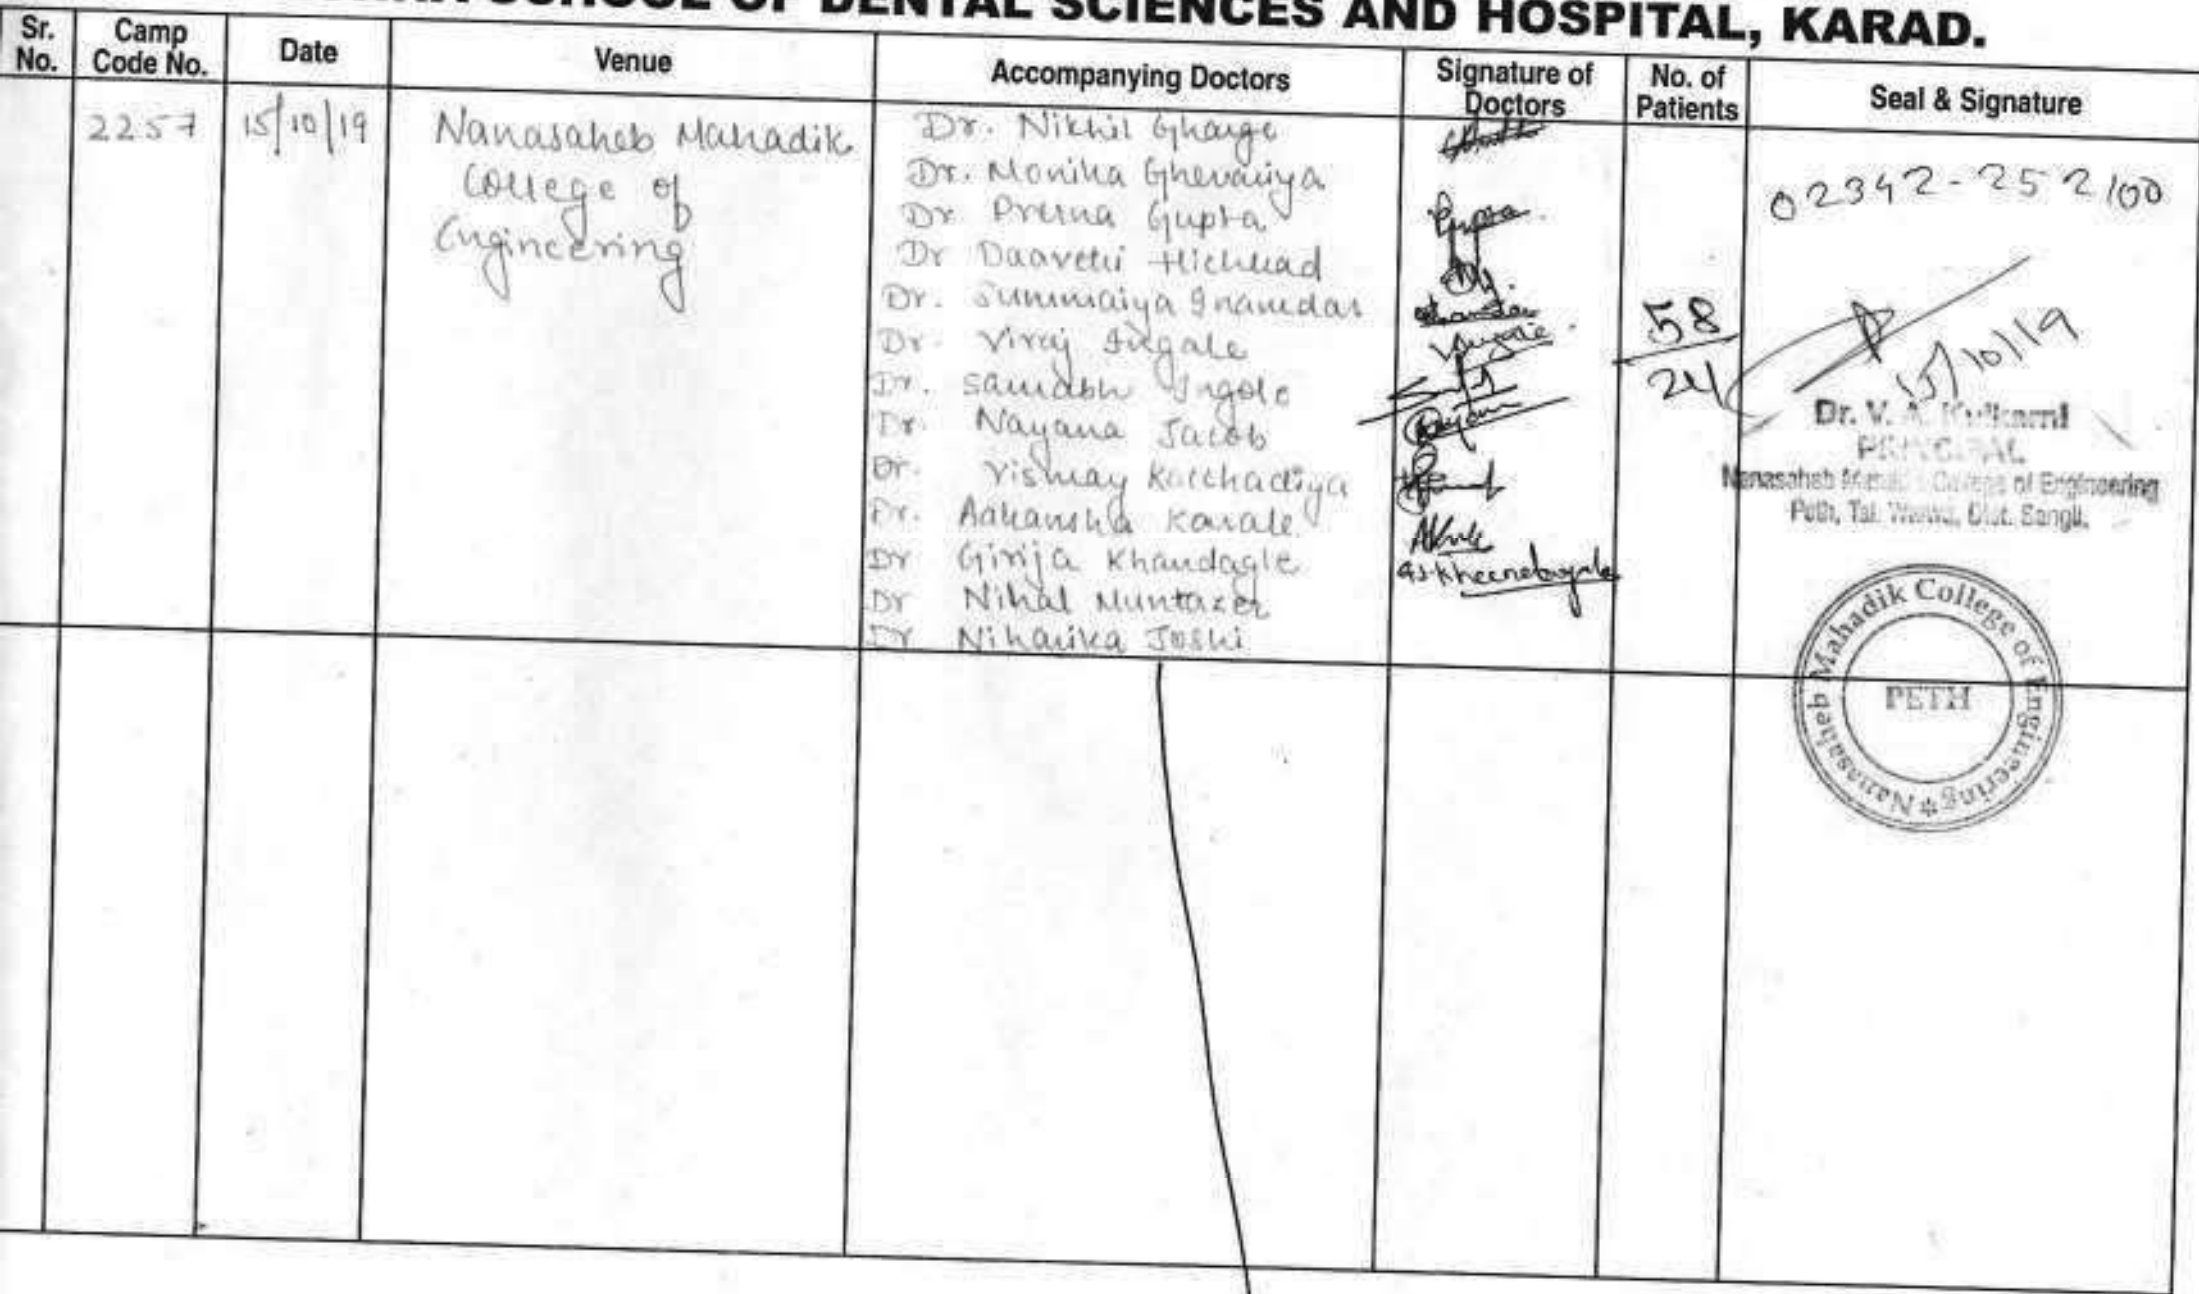 SCHOOL OF DENTAL SCIENCES AND HOSPITAL, KARAD.
Sr. No.
Camp Code No.
Date
Venue
Accompanying Doctors
Signature of Doctors
No. of Patients
Seal & Signature
2257
15/10/19
Nanasaheb Mahadik
College of
Engineering
Dr. Nikhil Gharge
Dr. Monika Ghevariya
Dr Prerna Gupta
Dr
Dr. Summaiya Inamdar
Dr. Viraj Ingale
Dr. Saurabh Ingole
Dr. Nayana Jacob
Dr. Vismay Kacchadiya
Dr. Aakansha Karale
Dr Girija Khandagle
Dr Nihal Muntazer
Dr Niharika Joshi
Gupta
58
24
02342-252100
15/10/19
Dr. V. A. Kulkarni
PRINCIPAL
Nanasaheb Mahadik College of Engineering
Peth, Tal. Walwa, Dist. Sangli.
Nanasaheb Mahadik College of Engineering
PETH